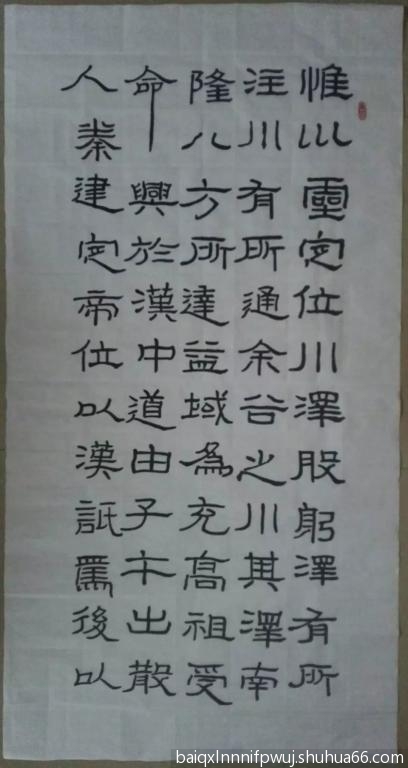 惟巛靈定位川澤股躬澤有所
注川有所通余谷之川其澤南
隆八方所達益域為充高祖受
命興於漢中道由子午出散
入秦建定帝位以漢詆焉後以
baiqxlnnnifpwuj.shuhua66.com